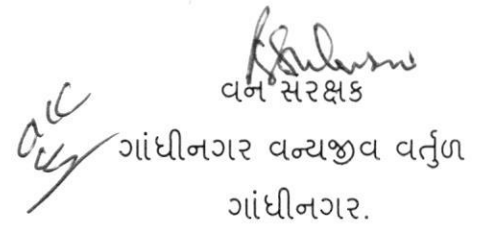 વન સરક્ષક
ગાંધીનગર વન્યજીવ વર્તુળ
ગાંધીનગર.